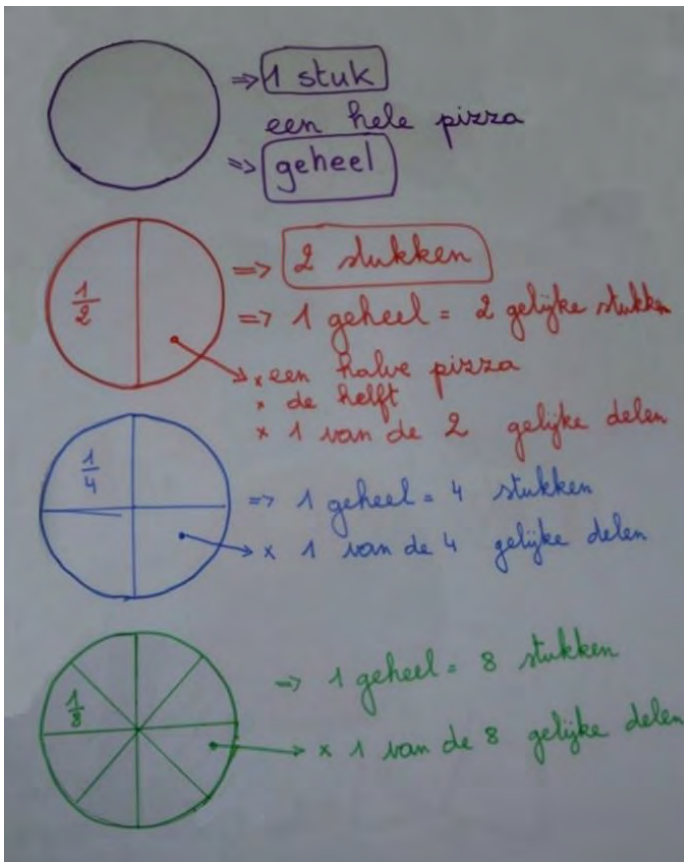 ⇒ 1 stuk
een hele pizza
⇒ geheel
1/2
⇒ 2 stukken
⇒ 1 geheel = 2 gelijke stukken
x een halve pizza
x de helft
x 1 van de 2 gelijke delen
1/4
⇒ 1 geheel = 4 stukken
x 1 van de 4 gelijke delen
1/8
⇒ 1 geheel = 8 stukken
x 1 van de 8 gelijke delen